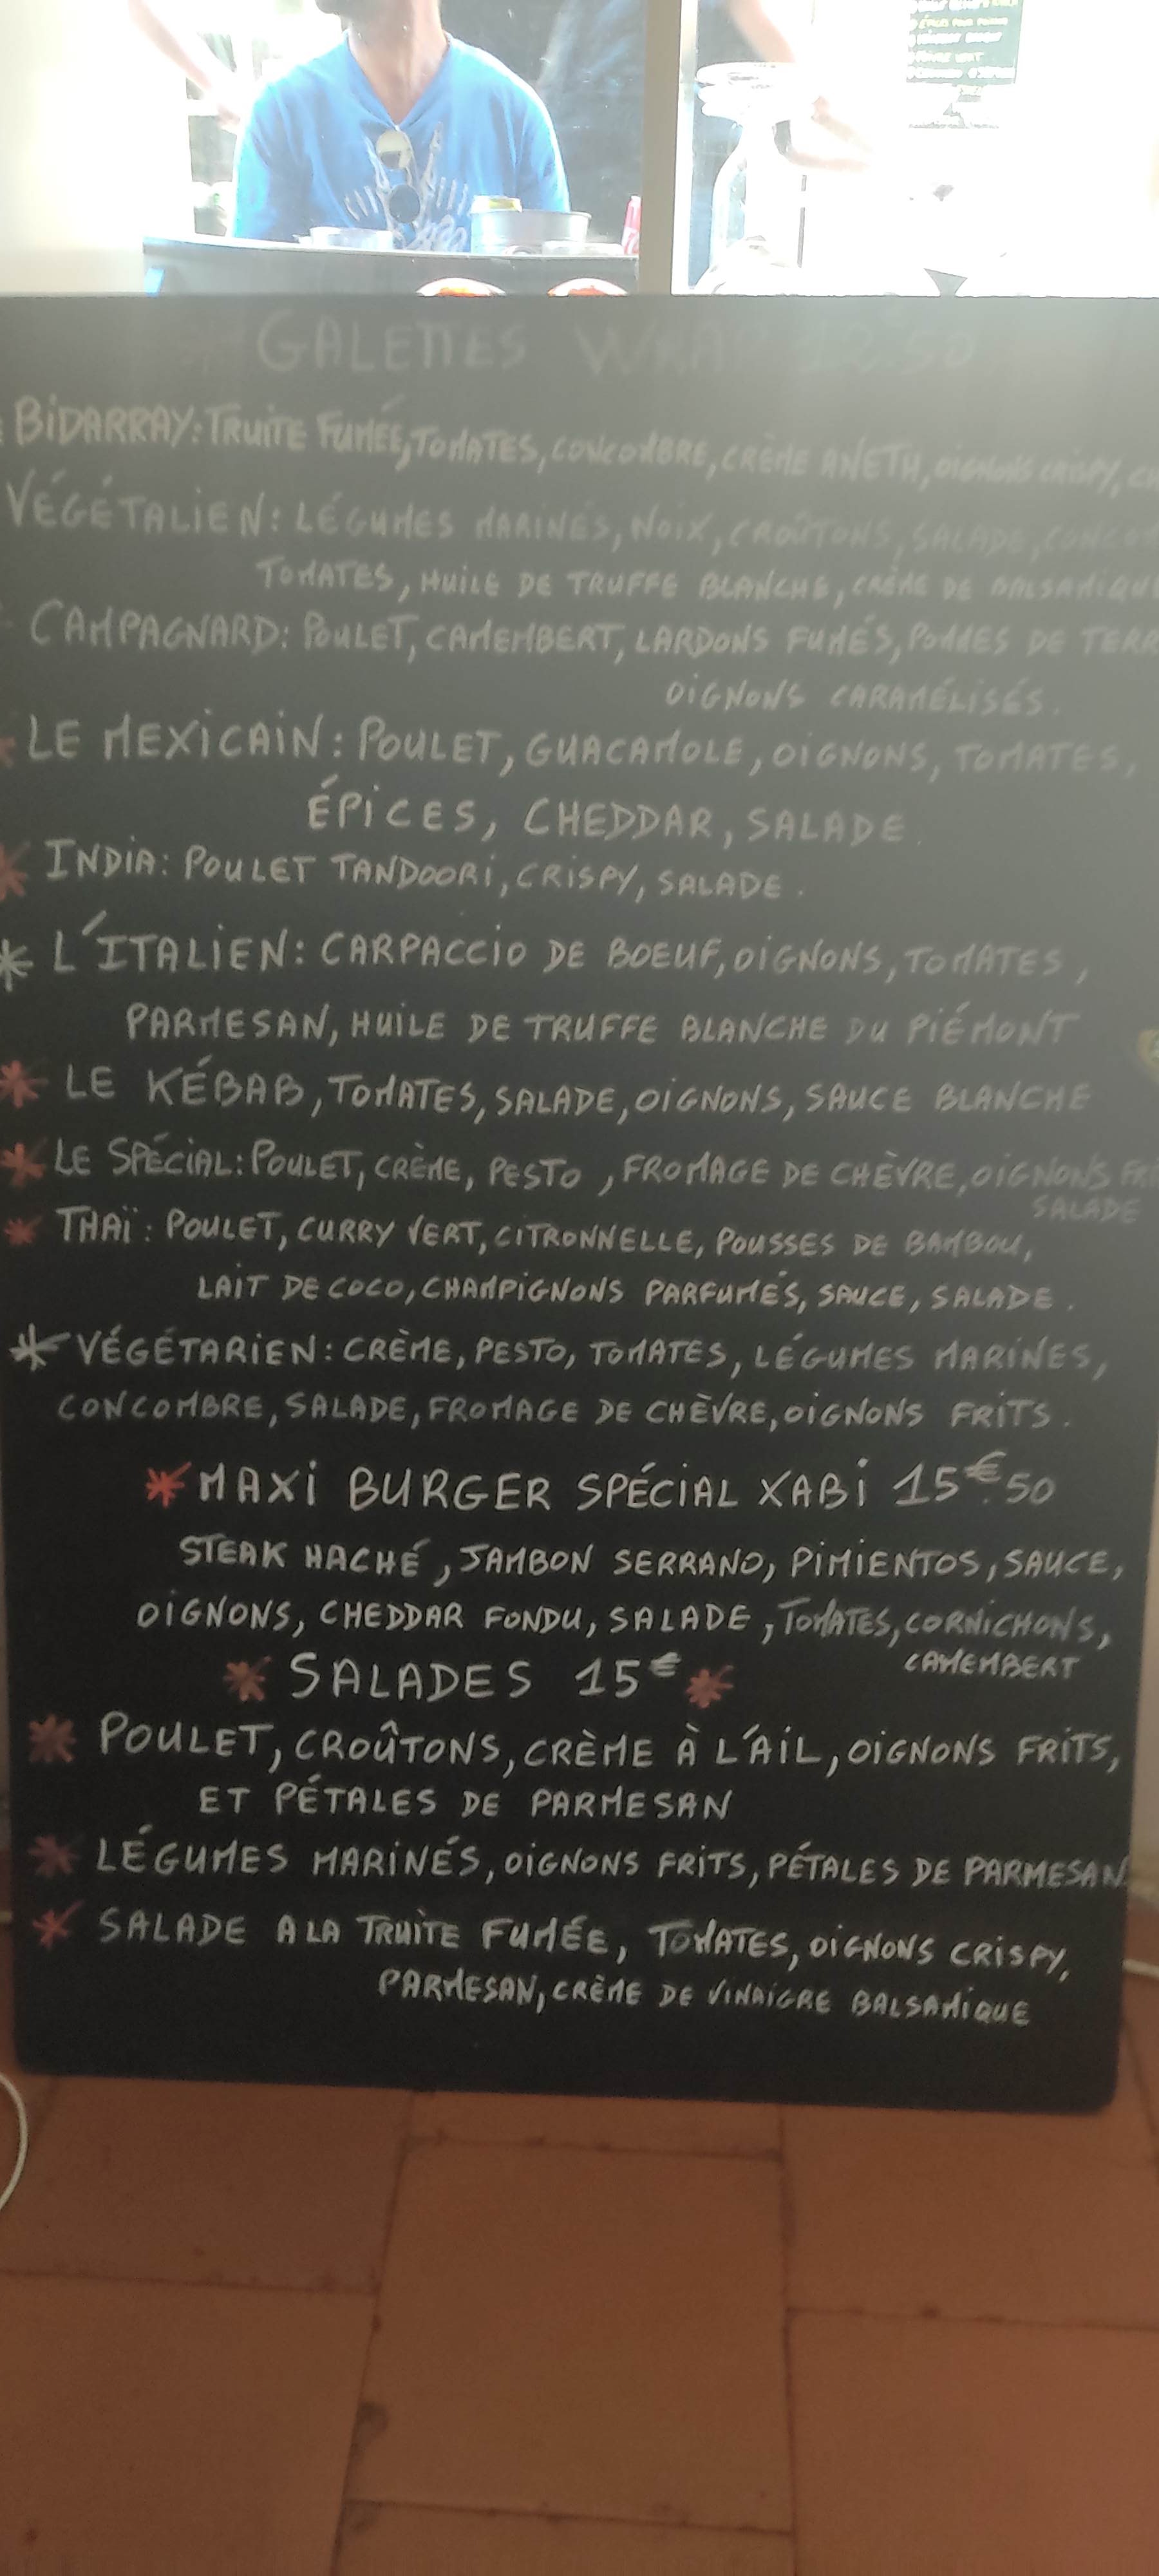 GALETTES WRAP 12€50
BIDARRAY: TRUITE FUMÉE, TOMATES, CONCOMBRE, CRÈME ANETH, OIGNONS CRISPY,
VÉGÉTALIEN: LÉGUMES MARINÉS, NOIX, CROÛTONS, SALADE,
TOMATES, HUILE DE TRUFFE BLANCHE, CRÈME DE BALSAMIQUE
CAMPAGNARD: POULET, CAMEMBERT, LARDONS FUMÉS, POMMES DE TERR
OIGNONS CARAMÉLISÉS.
* LE MEXICAIN: POULET, GUACAMOLE, OIGNONS, TOMATES,
ÉPICES, CHEDDAR, SALADE.
* INDIA: POULET TANDOORI, CRISPY, SALADE.
* L'ITALIEN: CARPACCIO DE BOEUF, OIGNONS, TOMATES,
PARMESAN, HUILE DE TRUFFE BLANCHE DU PIÉMONT
* LE KÉBAB, TOMATES, SALADE, OIGNONS, SAUCE BLANCHE
* LE SPÉCIAL: POULET, CRÈME, PESTO, FROMAGE DE CHÈVRE, OIGNONS FRI
SALADE
* THAÏ: POULET, CURRY VERT, CITRONNELLE, POUSSES DE BAMBOU,
LAIT DE COCO, CHAMPIGNONS PARFUMÉS, SAUCE, SALADE.
* VÉGÉTARIEN: CRÈME, PESTO, TOMATES, LÉGUMES MARINÉS,
CONCOMBRE, SALADE, FROMAGE DE CHÈVRE, OIGNONS FRITS.
* MAXI BURGER SPÉCIAL XABI 15€.50
STEAK HACHÉ, JAMBON SERRANO, PIMIENTOS, SAUCE,
OIGNONS, CHEDDAR FONDU, SALADE, TOMATES, CORNICHONS,
CAMEMBERT
* SALADES 15€ *
* POULET, CROÛTONS, CRÈME À L'AIL, OIGNONS FRITS,
ET PÉTALES DE PARMESAN
* LÉGUMES MARINÉS, OIGNONS FRITS, PÉTALES DE PARMESAN.
* SALADE A LA TRUITE FUMÉE, TOMATES, OIGNONS CRISPY,
PARMESAN, CRÈME DE VINAIGRE BALSAMIQUE